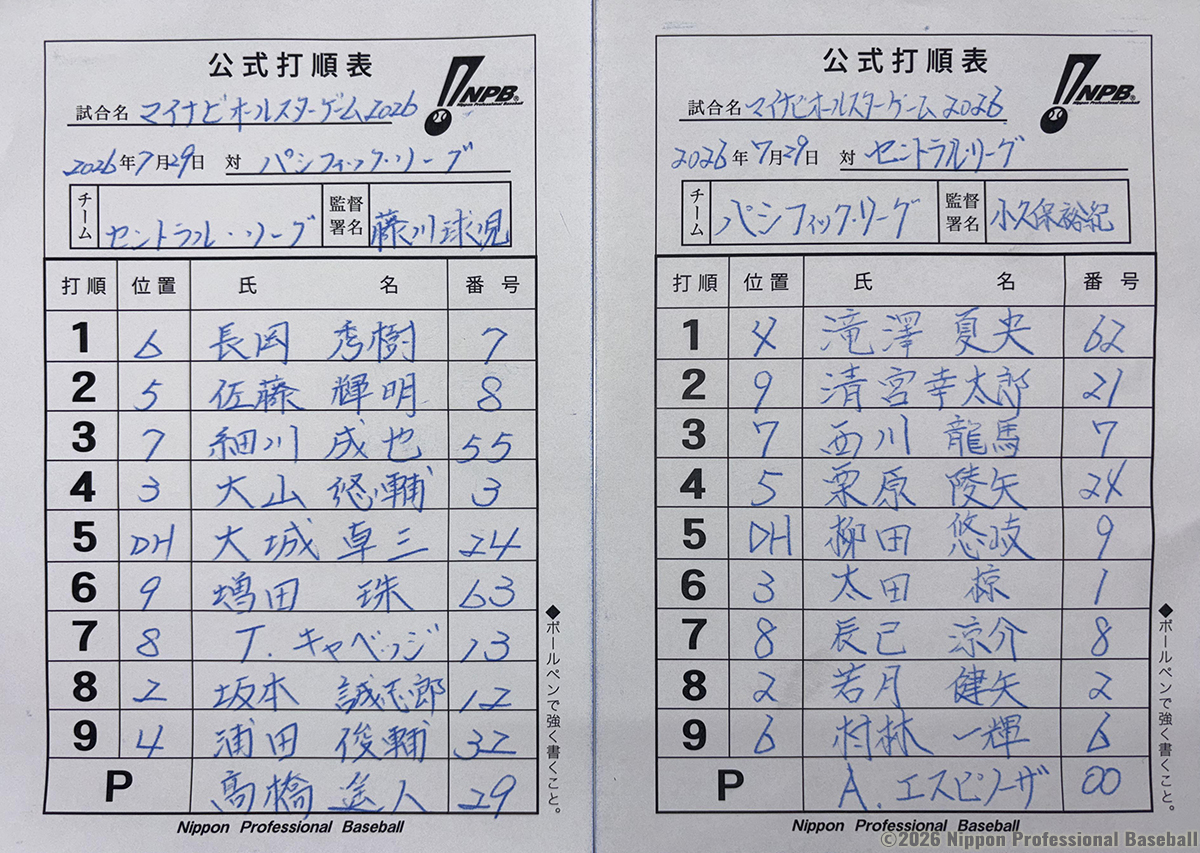 公式打順表
NPB
Nippon Professional Baseball
試合名 マイナビオールスターゲーム2026
2026年7月29日 対 パシフィック・リーグ
チーム セントラル・リーグ 監督署名 藤川球児
打順 位置 氏名 番号
1 6 長岡 秀樹 7
2 5 佐藤 輝明 8
3 7 細川 成也 55
4 3 大山 悠輔 3
5 DH 大城 卓三 24
6 9 増田 珠 63
7 8 T.キャベッジ 13
8 2 坂本 誠志郎 12
9 4 浦田 俊輔 32
P 高橋 遥人 29
◆ボールペンで強く書くこと。
Nippon Professional Baseball
公式打順表
NPB
Nippon Professional Baseball
試合名 マイナビオールスターゲーム2026
2026年7月29日 対 セントラルリーグ
チーム パシフィック・リーグ 監督署名 小久保裕紀
打順 位置 氏名 番号
1 4 滝澤 夏央 62
2 9 清宮幸太郎 21
3 7 西川 龍馬 7
4 5 栗原 陵矢 24
5 DH 柳田 悠岐 9
6 3 太田 椋 1
7 8 辰己 涼介 8
8 2 若月 健矢 2
9 6 村林 一輝 6
P A.エスピノーザ 00
◆ボールペンで強く書くこと。
Nippon Professional Baseball
©2026 Nippon Professional Baseball